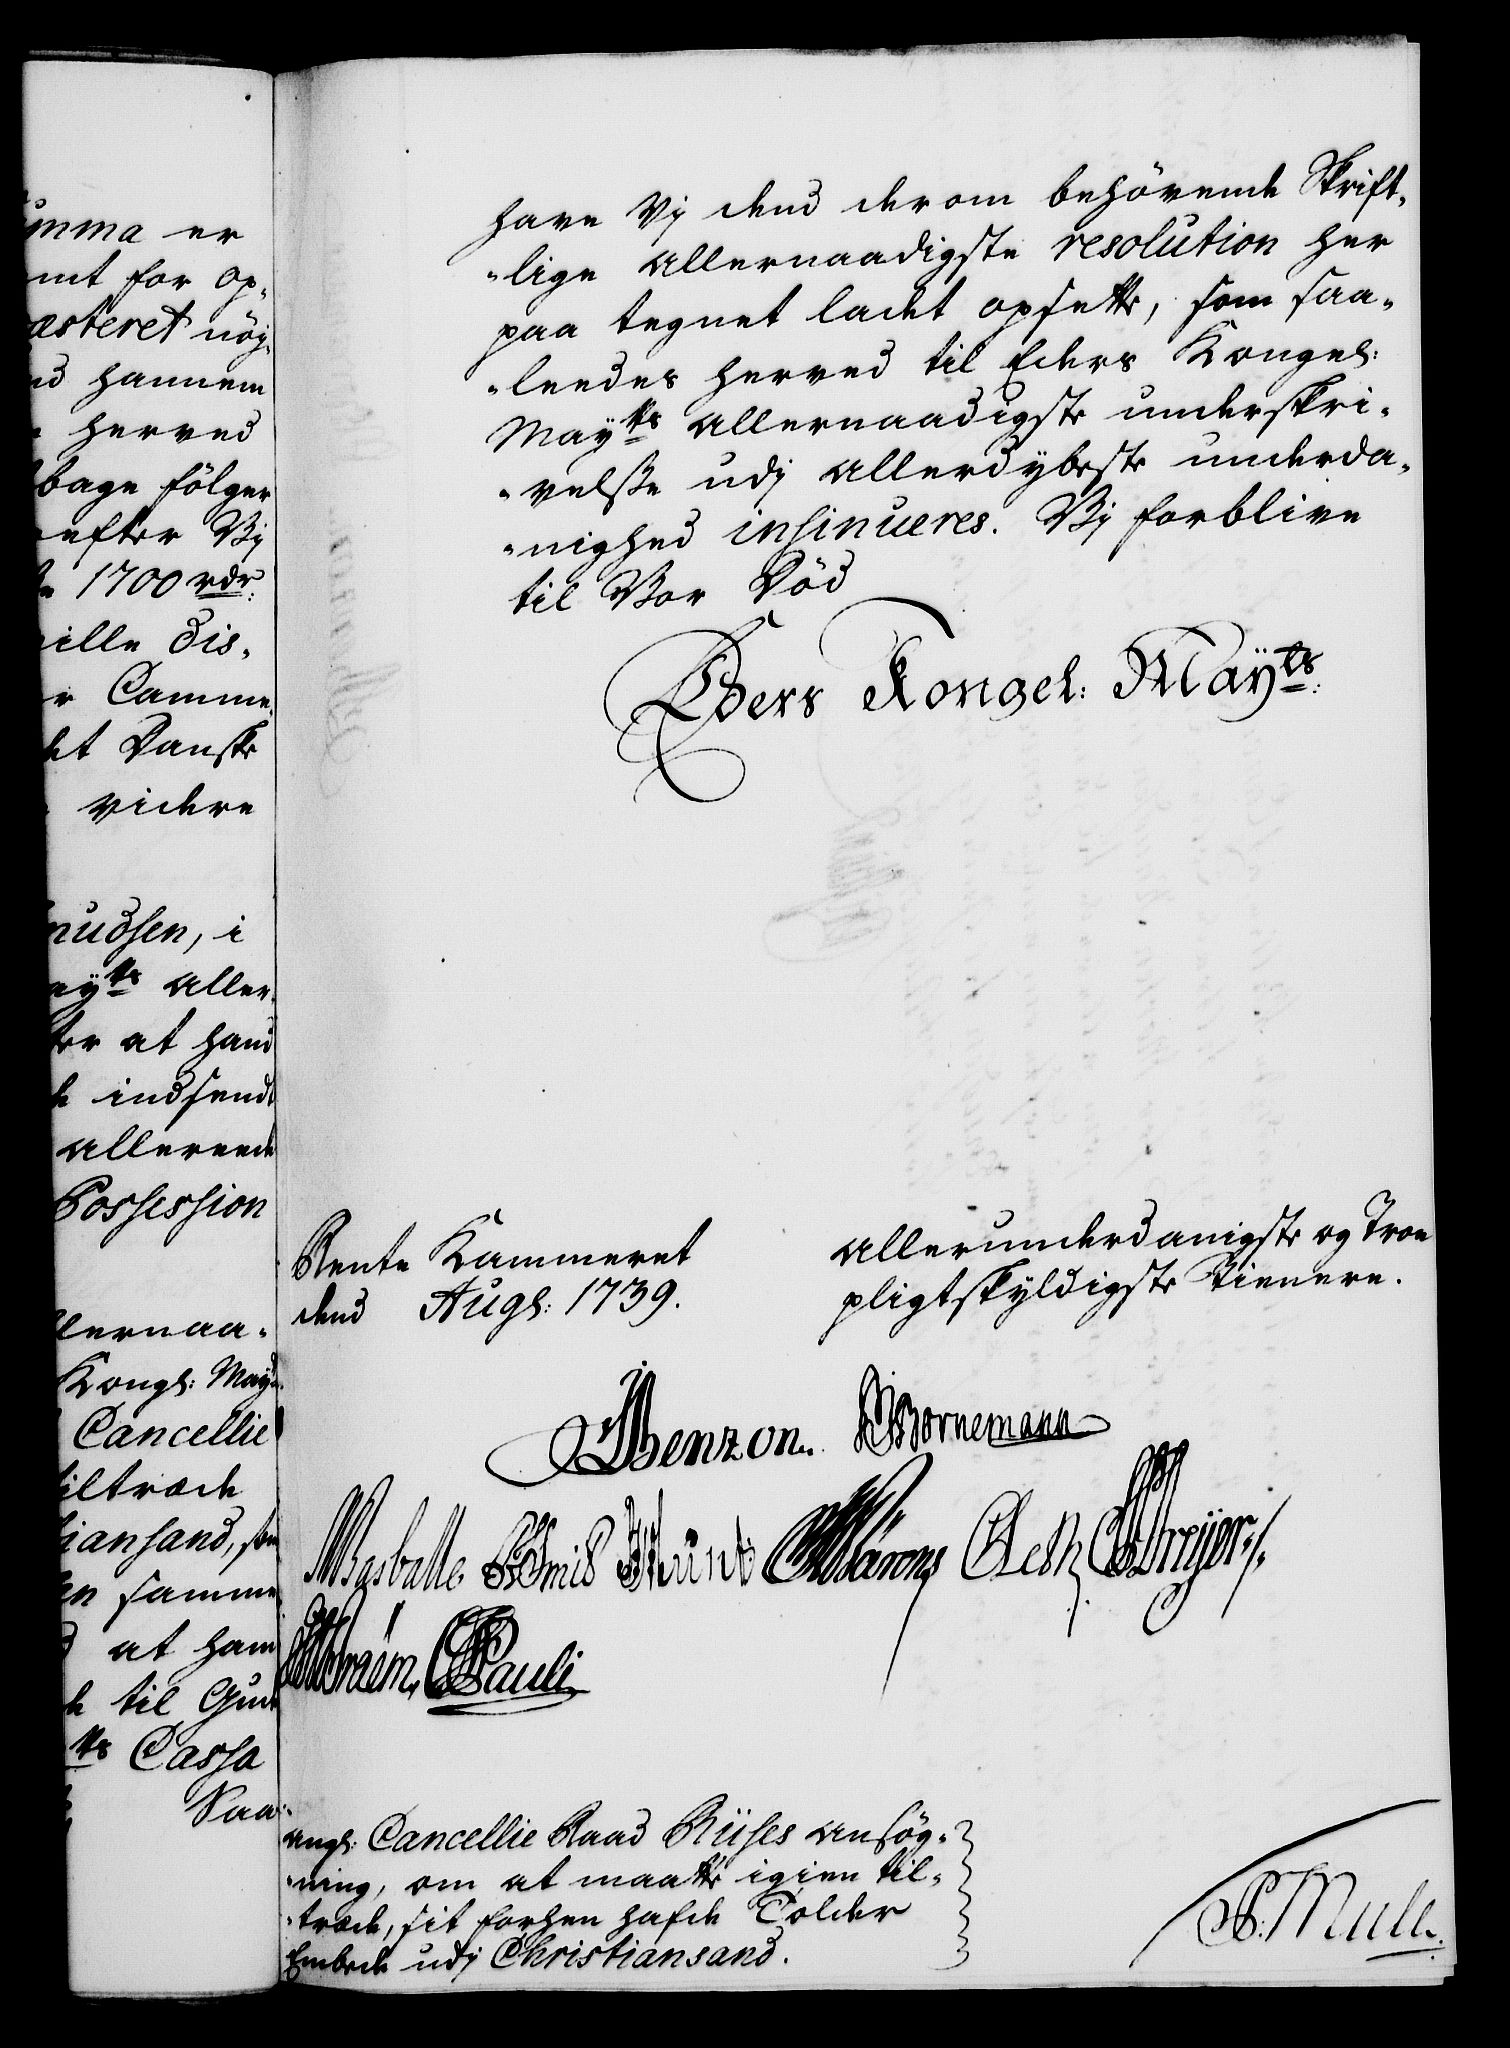 umma er
mt for op-
æsteret nöy-
nd hannem
herved
bage fölger
efter Vj
1700 rdr.
ville dis-
r Camme-
et Danske
videre
nudsen, i
ayts aller-
ter at hand
indsendt
allereede
Possession
llernaa-
Kongl: Mayts
Cancellie
iltræde
iansand, som
en samme
at ham
til Gud
ts Cassa
Saa-
have Vj dend derom behövende Skrift-
-lige allernaadigste resolution her
paa tegnet ladet opsette, som saa-
-leedes herved til Eders Kongel:
Mayts allernaadigste underskri-
-velsse udj allerdybeste underda-
-nighed insinueres. Vj forblive
til Vor Död
Eders Kongel: Mayts:
Rente Kammeret
dend Augs: 1739.
allerunderdanigste og Troe
pligtskyldigste Tienere.
Benzon. Bornemann
Basballe Smid
Pauli
angl: Cancellie Raad Riises ansög-
-ning, om at maatte igien til-
-træde, sit forhen hafde Tolder
Embede udj Christiansand.
P. Mule.